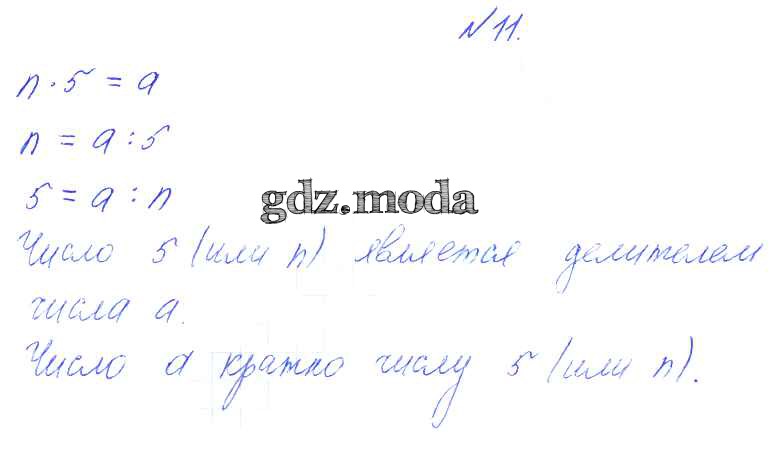 №11.
n · 5 = a
n = a : 5
5 = a : n
gdz.moda
Число 5 (или n) является делителем
числа a.
Число a кратно числу 5 (или n).